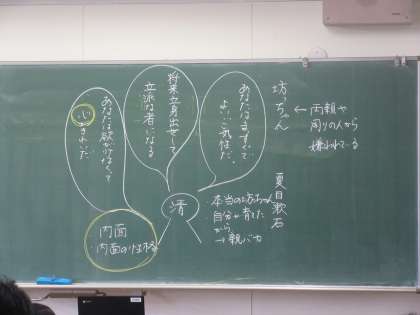 坊っちゃん
夏目漱石
← 両親や
周りの人から
嫌われてる
あなたはまっすぐで
よいご気性だ。
将来立身出世して
立派な者になる
あなたは欲がなくて
心がきれいだ
清
・本当の坊ちゃん
・自分が育てた
から
→親バカ
内面
・内面の性格